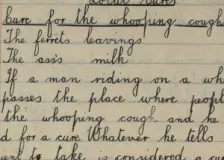 Local Cures
Cure for the whooping cough
The ferrets leavings
The ass's milk
If a man riding on a whi
passes the place where people
the whooping cough and he
d for a cure. Whatever he tells
to take is considered a